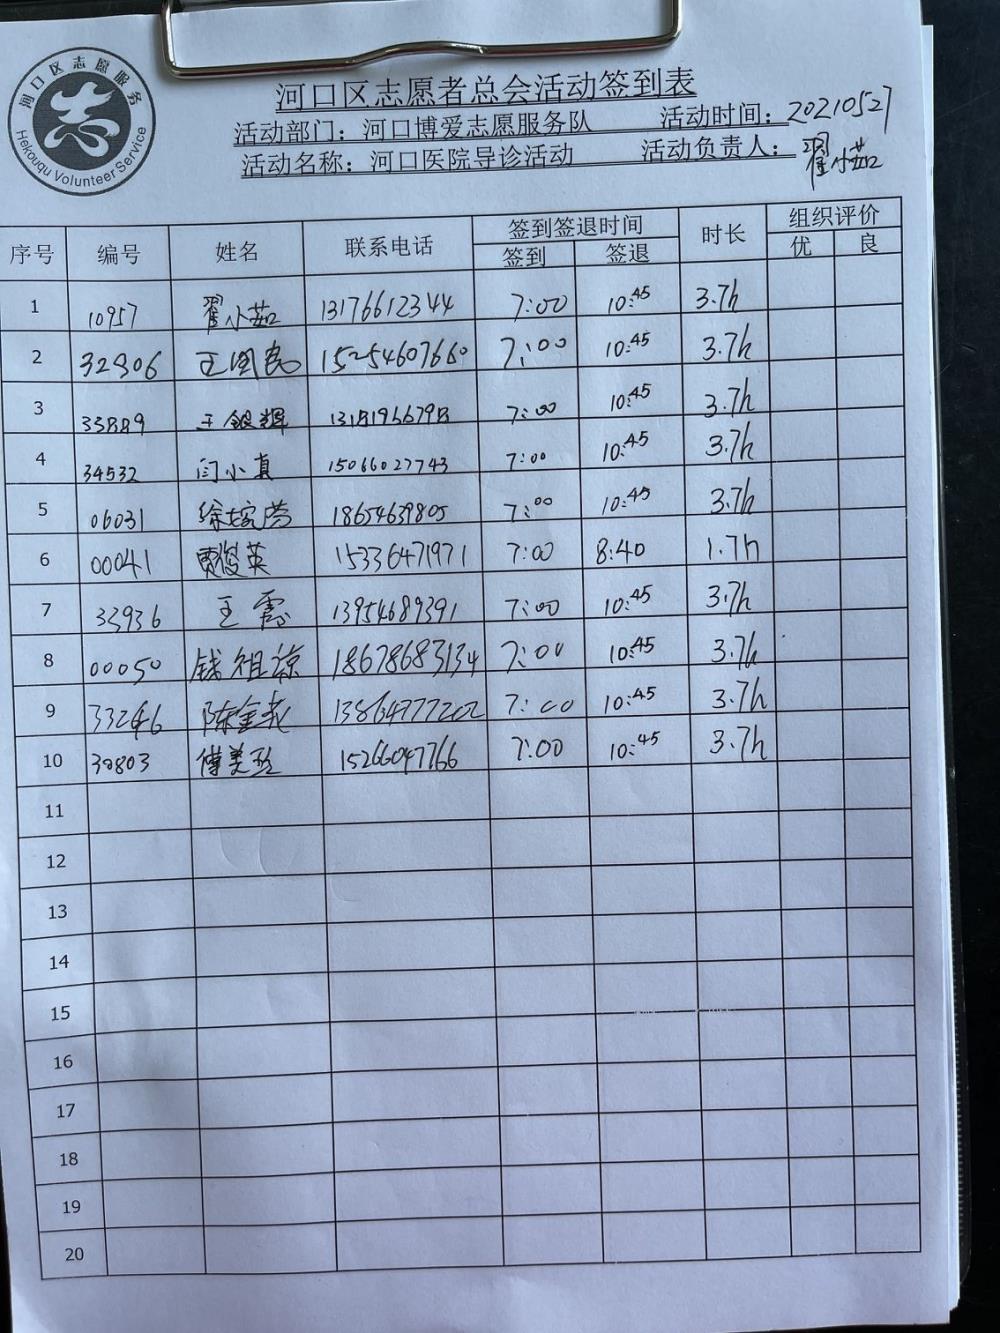 河口区志愿服务
Hekouqu Volunteer Service
河口区志愿者总会活动签到表
活动部门：河口博爱志愿服务队 活动时间：20210527
活动名称：河口医院导诊活动 活动负责人：翟小茹
序号 编号 姓名 联系电话 签到签退时间 时长 组织评价
签到 签退 优 良
1 10957 翟小茹 13176612344 7:00 10:45 3.7h
2 32906 王国民 15254607660 7:00 10:45 3.7h
3 33889 王银辉 7:00 10:45 3.7h
4 34532 闫小真 15066027743 7:00 10:45 3.7h
5 06031 18654639805 7:00 10:45 3.7h
6 00041 贾俊英 15336471971 7:00 8:40 1.7h
7 33936 王霞 13954689391 7:00 10:45 3.7h
8 00050 钱祖琼 18678683134 7:00 10:45 3.7h
9 33246 陈金花 13864777202 7:00 10:45 3.7h
10 30803 傅美玲 15266047766 7:00 10:45 3.7h
11
12
13
14
15
16
17
18
19
20